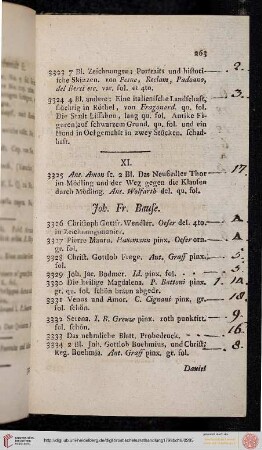 263
3323 7 Bl. Zeichnungen: Portraits und histori-
sche Skizzen. von Pesne, Reclam, Padoano,
del Berci etc. var. fol. et 4to. 2.
3324 4 Bl. andere: Eine italienische Landschaft,
flüchtig in Röthel, von Fragonard. qu. fol.
Die Stadt Lissabon, lang qu. fol. Antike Fi-
guren auf schwarzem Grund. qu. fol. und ein
Hund in Oelgemählt in zwey Stücken. schad-
haft. 3.
XI.
3325 Ant. Amon sc. 2 Bl. Das Neusiedler Thor
in Mödling und der Weg gegen die Klausen
durch Mödling. Ant. Wolfarth del. qu. fol. 17.
Joh. Fr. Bause.
3326 Christoph Gottfr. Wendler. Oeser del. 4to.
in Zeichnungsmanier.
3327 Pierre Maura. Hausmann pinx. Oeser orn.
gr. fol.
3328 Christ. Gottlob Frege. Ant. Graff pinx.
fol. 5.
3329 Joh. Jac. Bodmer. Id. pinx. fol. 5.
3330 Die heilige Magdalena. P. Battoni pinx.
gr. qu. fol. schön braun abgedr. 1.
3331 Venus und Amor. C. Cignani pinx. gr.
fol. schön. 18.
3332 Serena. I. B. Greuse pinx. roth punktirt.
fol. schön. 9.
3333 Das nehmliche Blatt, Probedruck. 16.
3334 2 Bl. Joh. Gottlob Boehmius, und Christ:
Reg. Boehmia. Ant. Graff pinx. gr. fol. 8.
Daniel